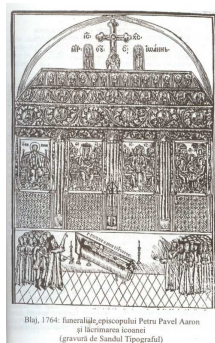 Blaj, 1764: funeraliile episcopului Petru Pavel Aaron
și lăcrimarea icoanei
(gravură de Sandul Tipograful)